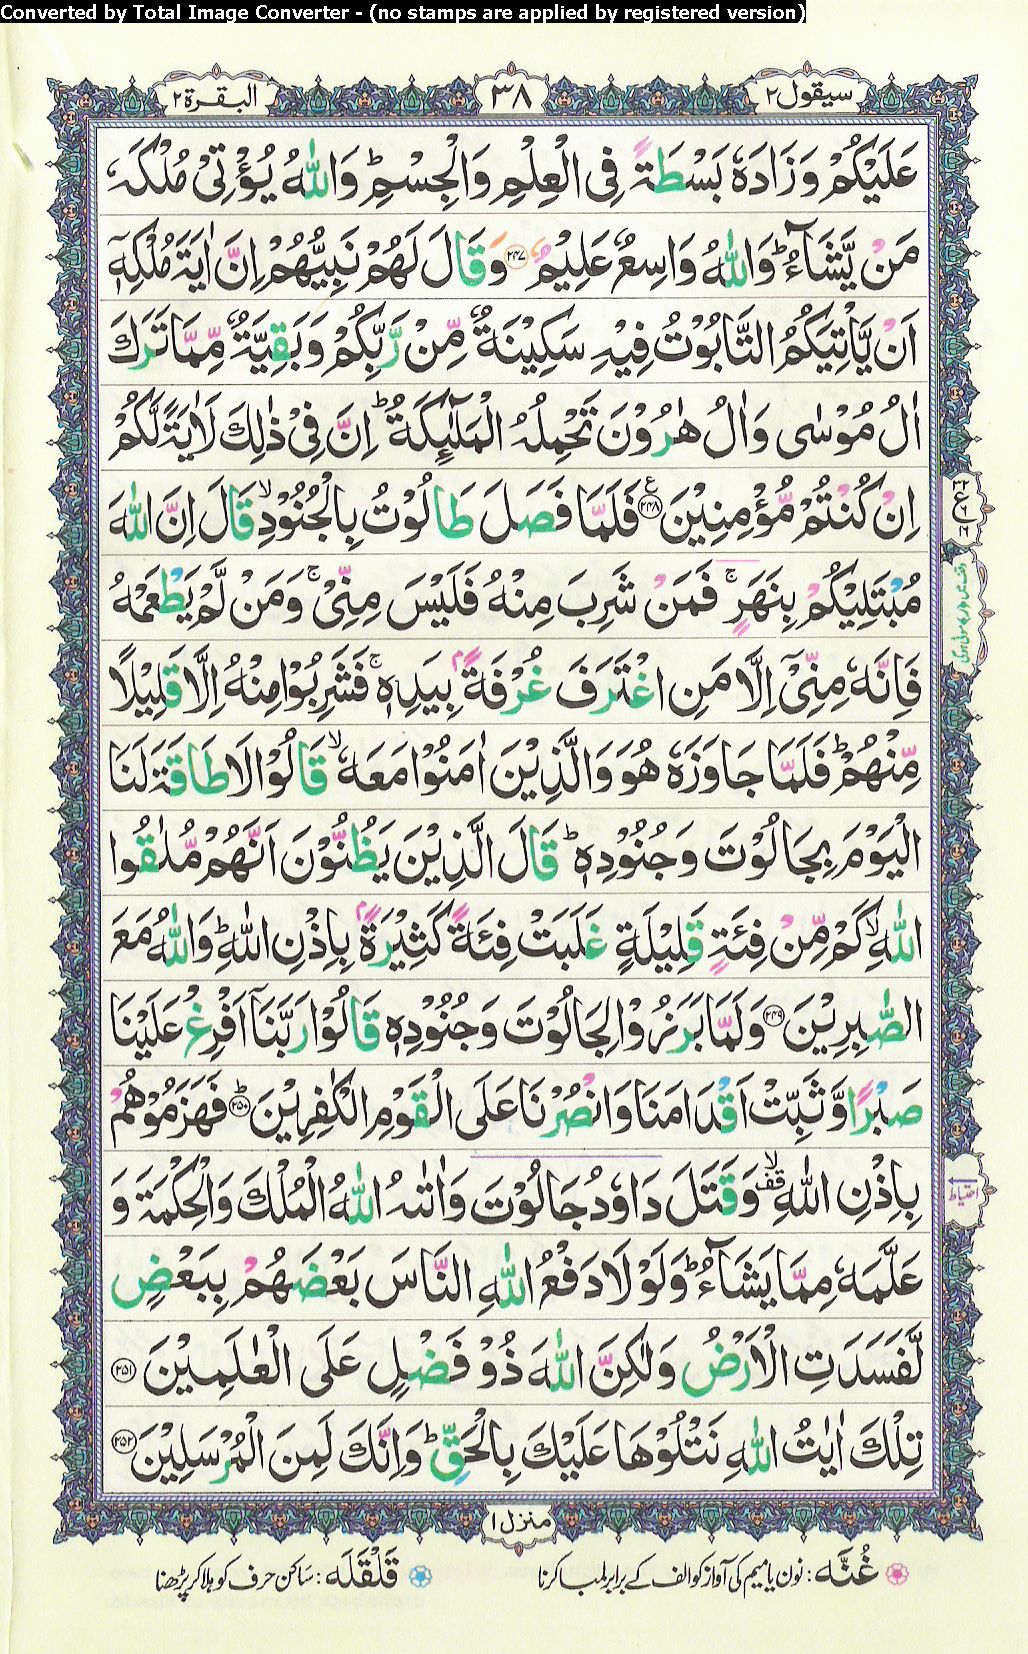 Converted by Total Image Converter - (no stamps are applied by registered version)
سيقول ٢
٣٨
البقرة ٢
عَلَيْكُمْ وَزَادَهٗ بَسْطَةً فِى الْعِلْمِ وَالْجِسْمِ ؕ وَاللّٰهُ يُؤْتِىْ مُلْكَهٗ
مَنْ يَّشَآءُ ؕ وَاللّٰهُ وَاسِعٌ عَلِيْمٌ ﴿۲۴۷﴾ وَقَالَ لَهُمْ نَبِيُّهُمْ اِنَّ اٰيَةَ مُلْكِهٖۤ
اَنْ يَّاْتِيَكُمُ التَّابُوْتُ فِيْهِ سَكِيْنَةٌ مِّنْ رَّبِّكُمْ وَبَقِيَّةٌ مِّمَّا تَرَكَ
اٰلُ مُوْسٰى وَاٰلُ هٰرُوْنَ تَحْمِلُهُ الْمَلٰٓئِكَةُ ؕ اِنَّ فِىْ ذٰلِكَ لَاٰيَةً لَّكُمْ
اِنْ كُنْتُمْ مُّؤْمِنِيْنَ ﴿۲۴۸﴾ ع فَلَمَّا فَصَلَ طَالُوْتُ بِالْجُنُوْدِ ۙ قَالَ اِنَّ اللّٰهَ
مُبْتَلِيْكُمْ بِنَهَرٍ ۚ فَمَنْ شَرِبَ مِنْهُ فَلَيْسَ مِنِّىْ ۚ وَمَنْ لَّمْ يَطْعَمْهُ
فَاِنَّهٗ مِنِّىْۤ اِلَّا مَنِ اغْتَرَفَ غُرْفَةًۢ بِيَدِهٖ ۚ فَشَرِبُوْا مِنْهُ اِلَّا قَلِيْلًا
مِّنْهُمْ ؕ فَلَمَّا جَاوَزَهٗ هُوَ وَالَّذِيْنَ اٰمَنُوْا مَعَهٗ ۙ قَالُوْا لَا طَاقَةَ لَنَا
الْيَوْمَ بِجَالُوْتَ وَجُنُوْدِهٖ ؕ قَالَ الَّذِيْنَ يَظُنُّوْنَ اَنَّهُمْ مُّلٰقُوا
اللّٰهِ ۙ كَمْ مِّنْ فِئَةٍ قَلِيْلَةٍ غَلَبَتْ فِئَةً كَثِيْرَةًۢ بِاِذْنِ اللّٰهِ ؕ وَاللّٰهُ مَعَ
الصّٰبِرِيْنَ ﴿۲۴۹﴾ وَلَمَّا بَرَزُوْا لِجَالُوْتَ وَجُنُوْدِهٖ قَالُوْا رَبَّنَاۤ اَفْرِغْ عَلَيْنَا
صَبْرًا وَّثَبِّتْ اَقْدَامَنَا وَانْصُرْنَا عَلَى الْقَوْمِ الْكٰفِرِيْنَ ؕ ﴿۲۵۰﴾ فَهَزَمُوْهُمْ
بِاِذْنِ اللّٰهِ ۙ قف وَقَتَلَ دَاوٗدُ جَالُوْتَ وَاٰتٰىهُ اللّٰهُ الْمُلْكَ وَالْحِكْمَةَ وَ
عَلَّمَهٗ مِمَّا يَشَآءُ ؕ وَلَوْلَا دَفْعُ اللّٰهِ النَّاسَ بَعْضَهُمْ بِبَعْضٍ
لَّفَسَدَتِ الْاَرْضُ وَلٰكِنَّ اللّٰهَ ذُوْ فَضْلٍ عَلَى الْعٰلَمِيْنَ ﴿۲۵۱﴾
تِلْكَ اٰيٰتُ اللّٰهِ نَتْلُوْهَا عَلَيْكَ بِالْحَقِّ ؕ وَاِنَّكَ لَمِنَ الْمُرْسَلِيْنَ ﴿۲۵۲﴾
احتیاط
منزل ١
غُنَّه : نون یا میم کی آواز کو الف کے برابر لمبا کرنا
قَلْقَلَه : ساکن حرف کو ہلا کر پڑھنا